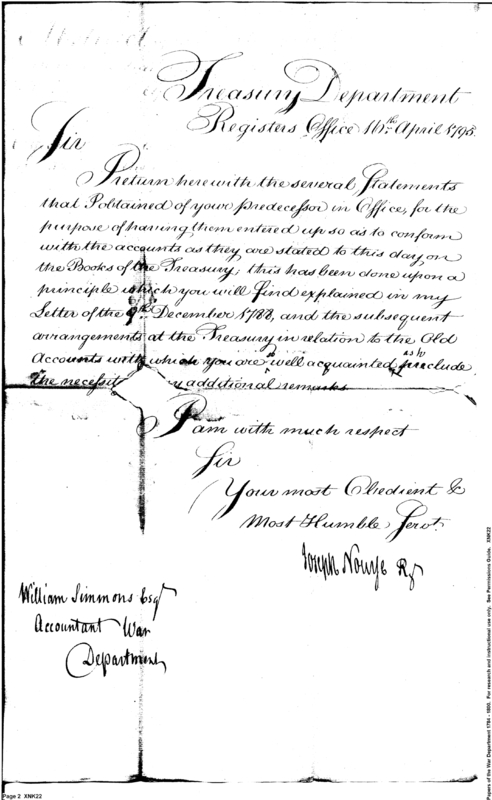 Treasury Department
Registers Office 16th April 1795
Sir
I return herewith the several Statements
that I obtained of your predecessor in Office, for the
purpose of having them entered up so as to conform
with the accounts as they are stated to this day on
the Books of the Treasury, this has been done upon a
principle which you will find explained in my
Letter of the 9th December 1788, and the subsequent
arrangements at the Treasury in relation to the Old
Accounts with which you are so well acquainted, as to preclude
the necessity any additional remarks
I am with much respect
Sir
Your most Obedient &
Most Humble Servt.
Joseph Nourse Rr
William Simmons Esqr
Accountant War
Department
Page 2 XNK22
Papers of the War Department 1784 - 1800. For research and instructional use only. See Permissions Guide. XNK22